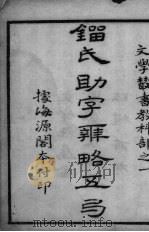 文學叢書教科部之一
鎦氏助字辨略五弓
據海源閣本付印